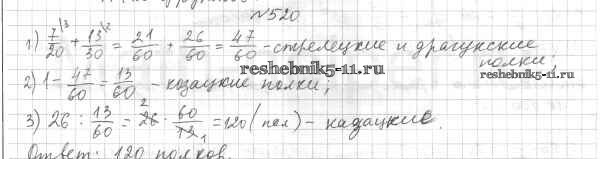 №520
1) 7/20 |3 + 13/30 |2 = 21/60 + 26/60 = 47/60 - стрелецкие и драгунские
полки;
reshebnik5-11.ru
reshebnik5-11.ru
2) 1 - 47/60 = 13/60 - козацкие полки;
3) 26 : 13/60 = 26 2 · 60/13 1 = 120 (пол) - кадацкие.
Ответ: 120 полков.